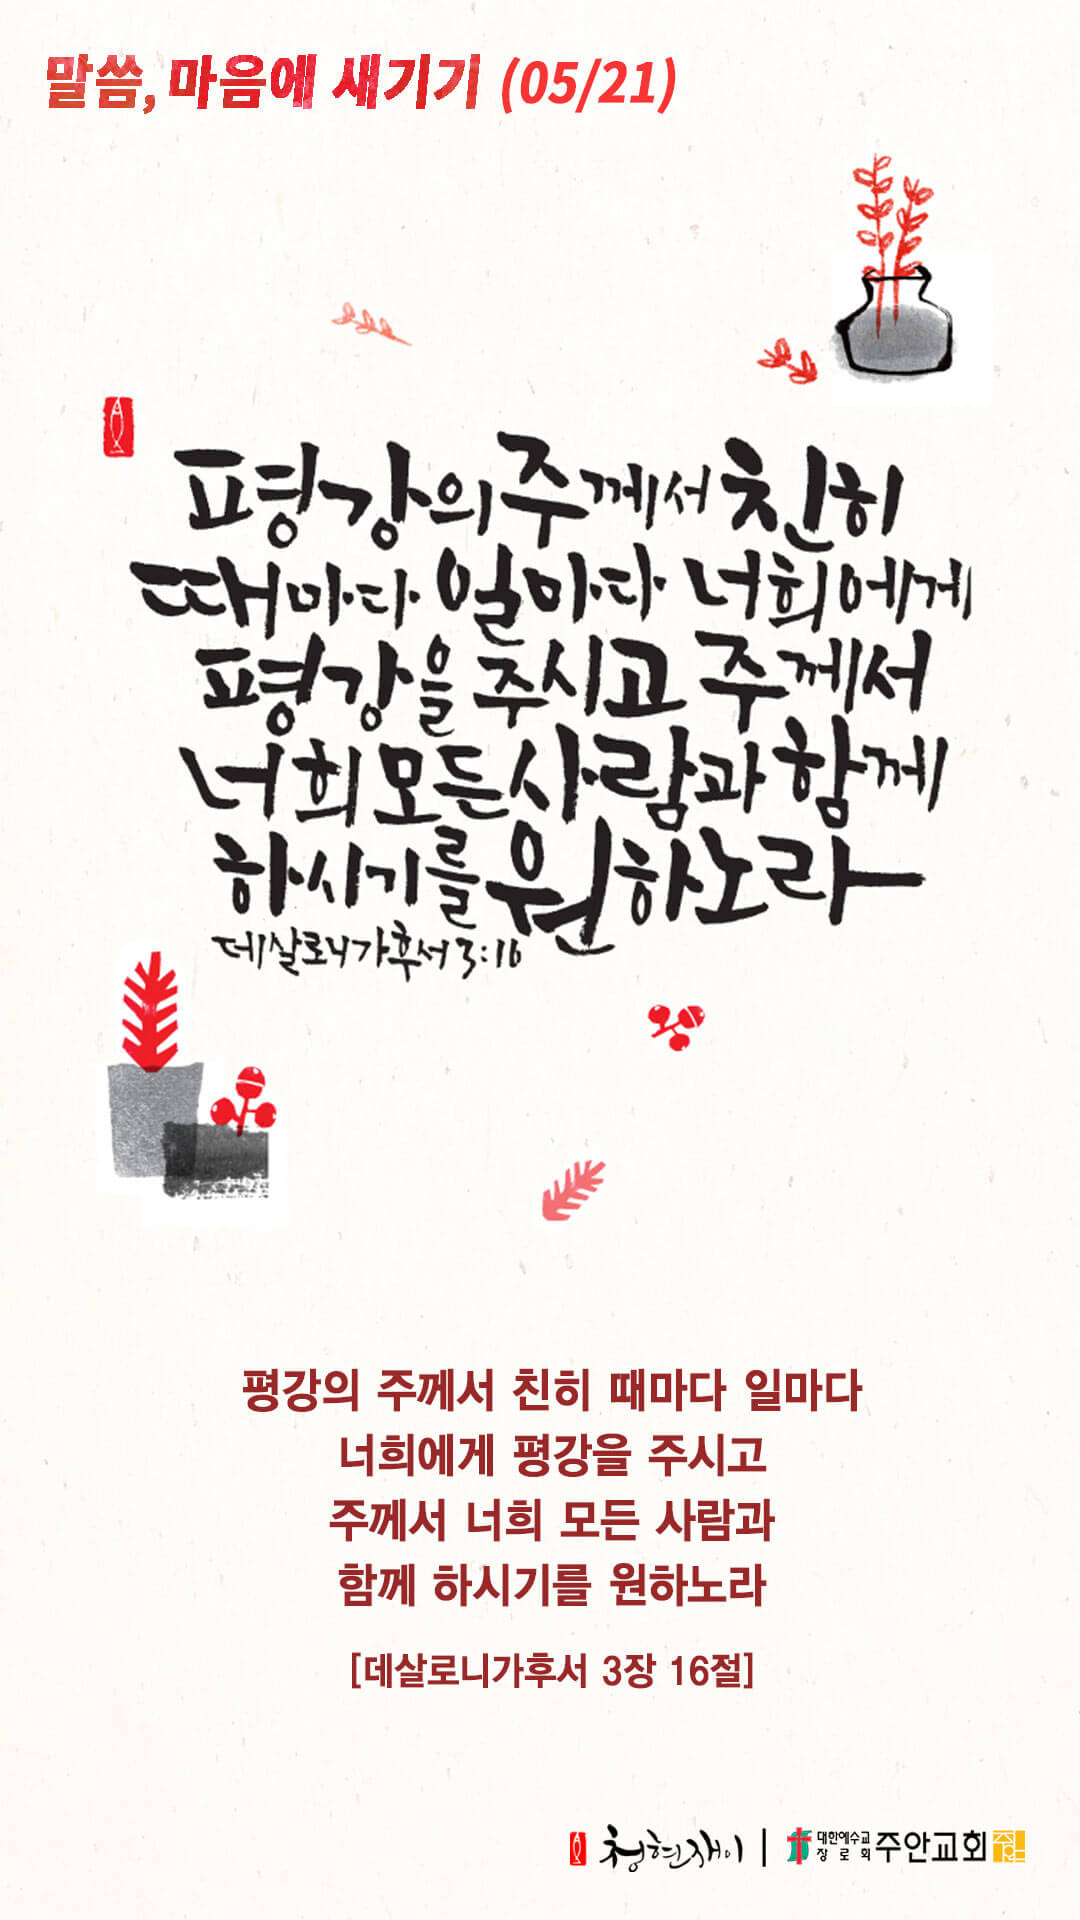 말씀, 마음에 새기기 (05/21)
평강의 주께서 친히
때마다 일마다 너희에게
평강을 주시고 주께서
너희 모든 사람과 함께
하시기를 원하노라
데살로니가후서 3:16
평강의 주께서 친히 때마다 일마다
너희에게 평강을 주시고
주께서 너희 모든 사람과
함께 하시기를 원하노라
[데살로니가후서 3장 16절]
청현재이 | 대한예수교 장로회 주안교회 주안